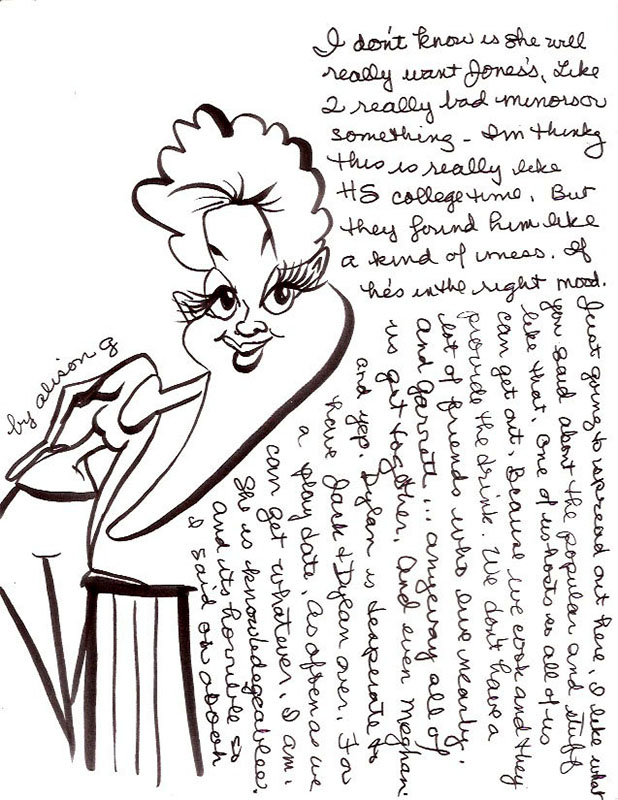 I don't know is she will
really want Jones's, Like
2 really bad minors or
something - I'm thinkg
this is really like
HS college time. But
they found him like
a kind of . If
he's in the right mood.
Just going to spread out here. I like what
you said about the popular and stuff
like that. One of us hosts so all of us
can get out. Because we cook and they
provide the drink. We don't have a
lot of friends who live nearly.
And Garrett... anyway all of
us get together. And even Meghan.
and yep. Dylan is desperate to
have Jack & Dylan over. For
a play date. As often as we
can get whatever. I am.
She is knowledegeablee.
and its horrible so
I said oh
by alison g